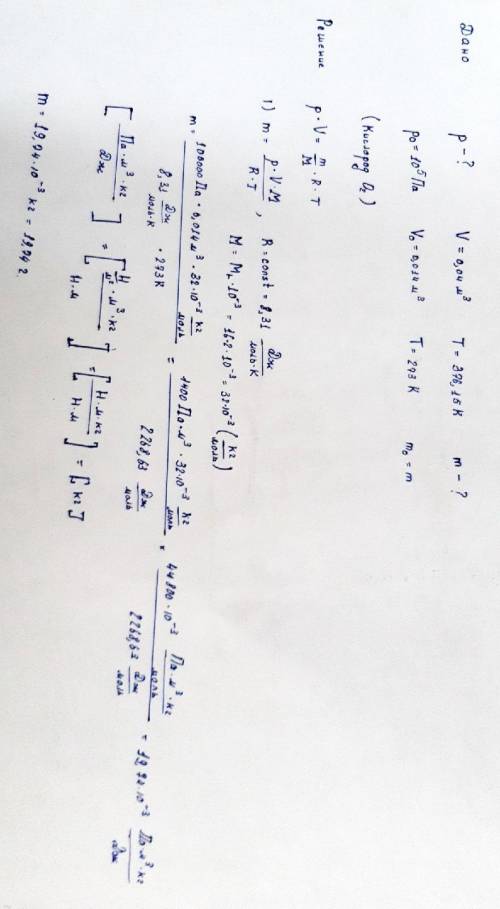 Дано p - ? V = 0,04 м³ T = 378,15 К m - ?
p₀ = 10⁵ Па V₀ = 0,014 м³ T = 273 К m₀ = m
(Кислород O₂)
Решение p · V = m/M · R · T
1) m = p · V · M / R · T , R = const = 8,31 Дж/моль·К
M = Mᵣ · 10⁻³ = 16·2·10⁻³ = 32·10⁻³ (кг/моль)
m = 100000 Па · 0,014 м³ · 32·10⁻³ кг/моль / 8,31 Дж/моль·К · 273 К = 1400 Па·м³ · 32·10⁻³ кг/моль / 2268,63 Дж/моль = 44800·10⁻³ Па·м³·кг/моль / 2268,63 Дж/моль = 19,74·10⁻³ Па·м³·кг/Дж
[Па·м³·кг/Дж] = [Н/м² · м³ · кг / Н·м] = [Н·м·кг/Н·м] = [кг]
m = 19,74·10⁻³ кг = 19,74 г.